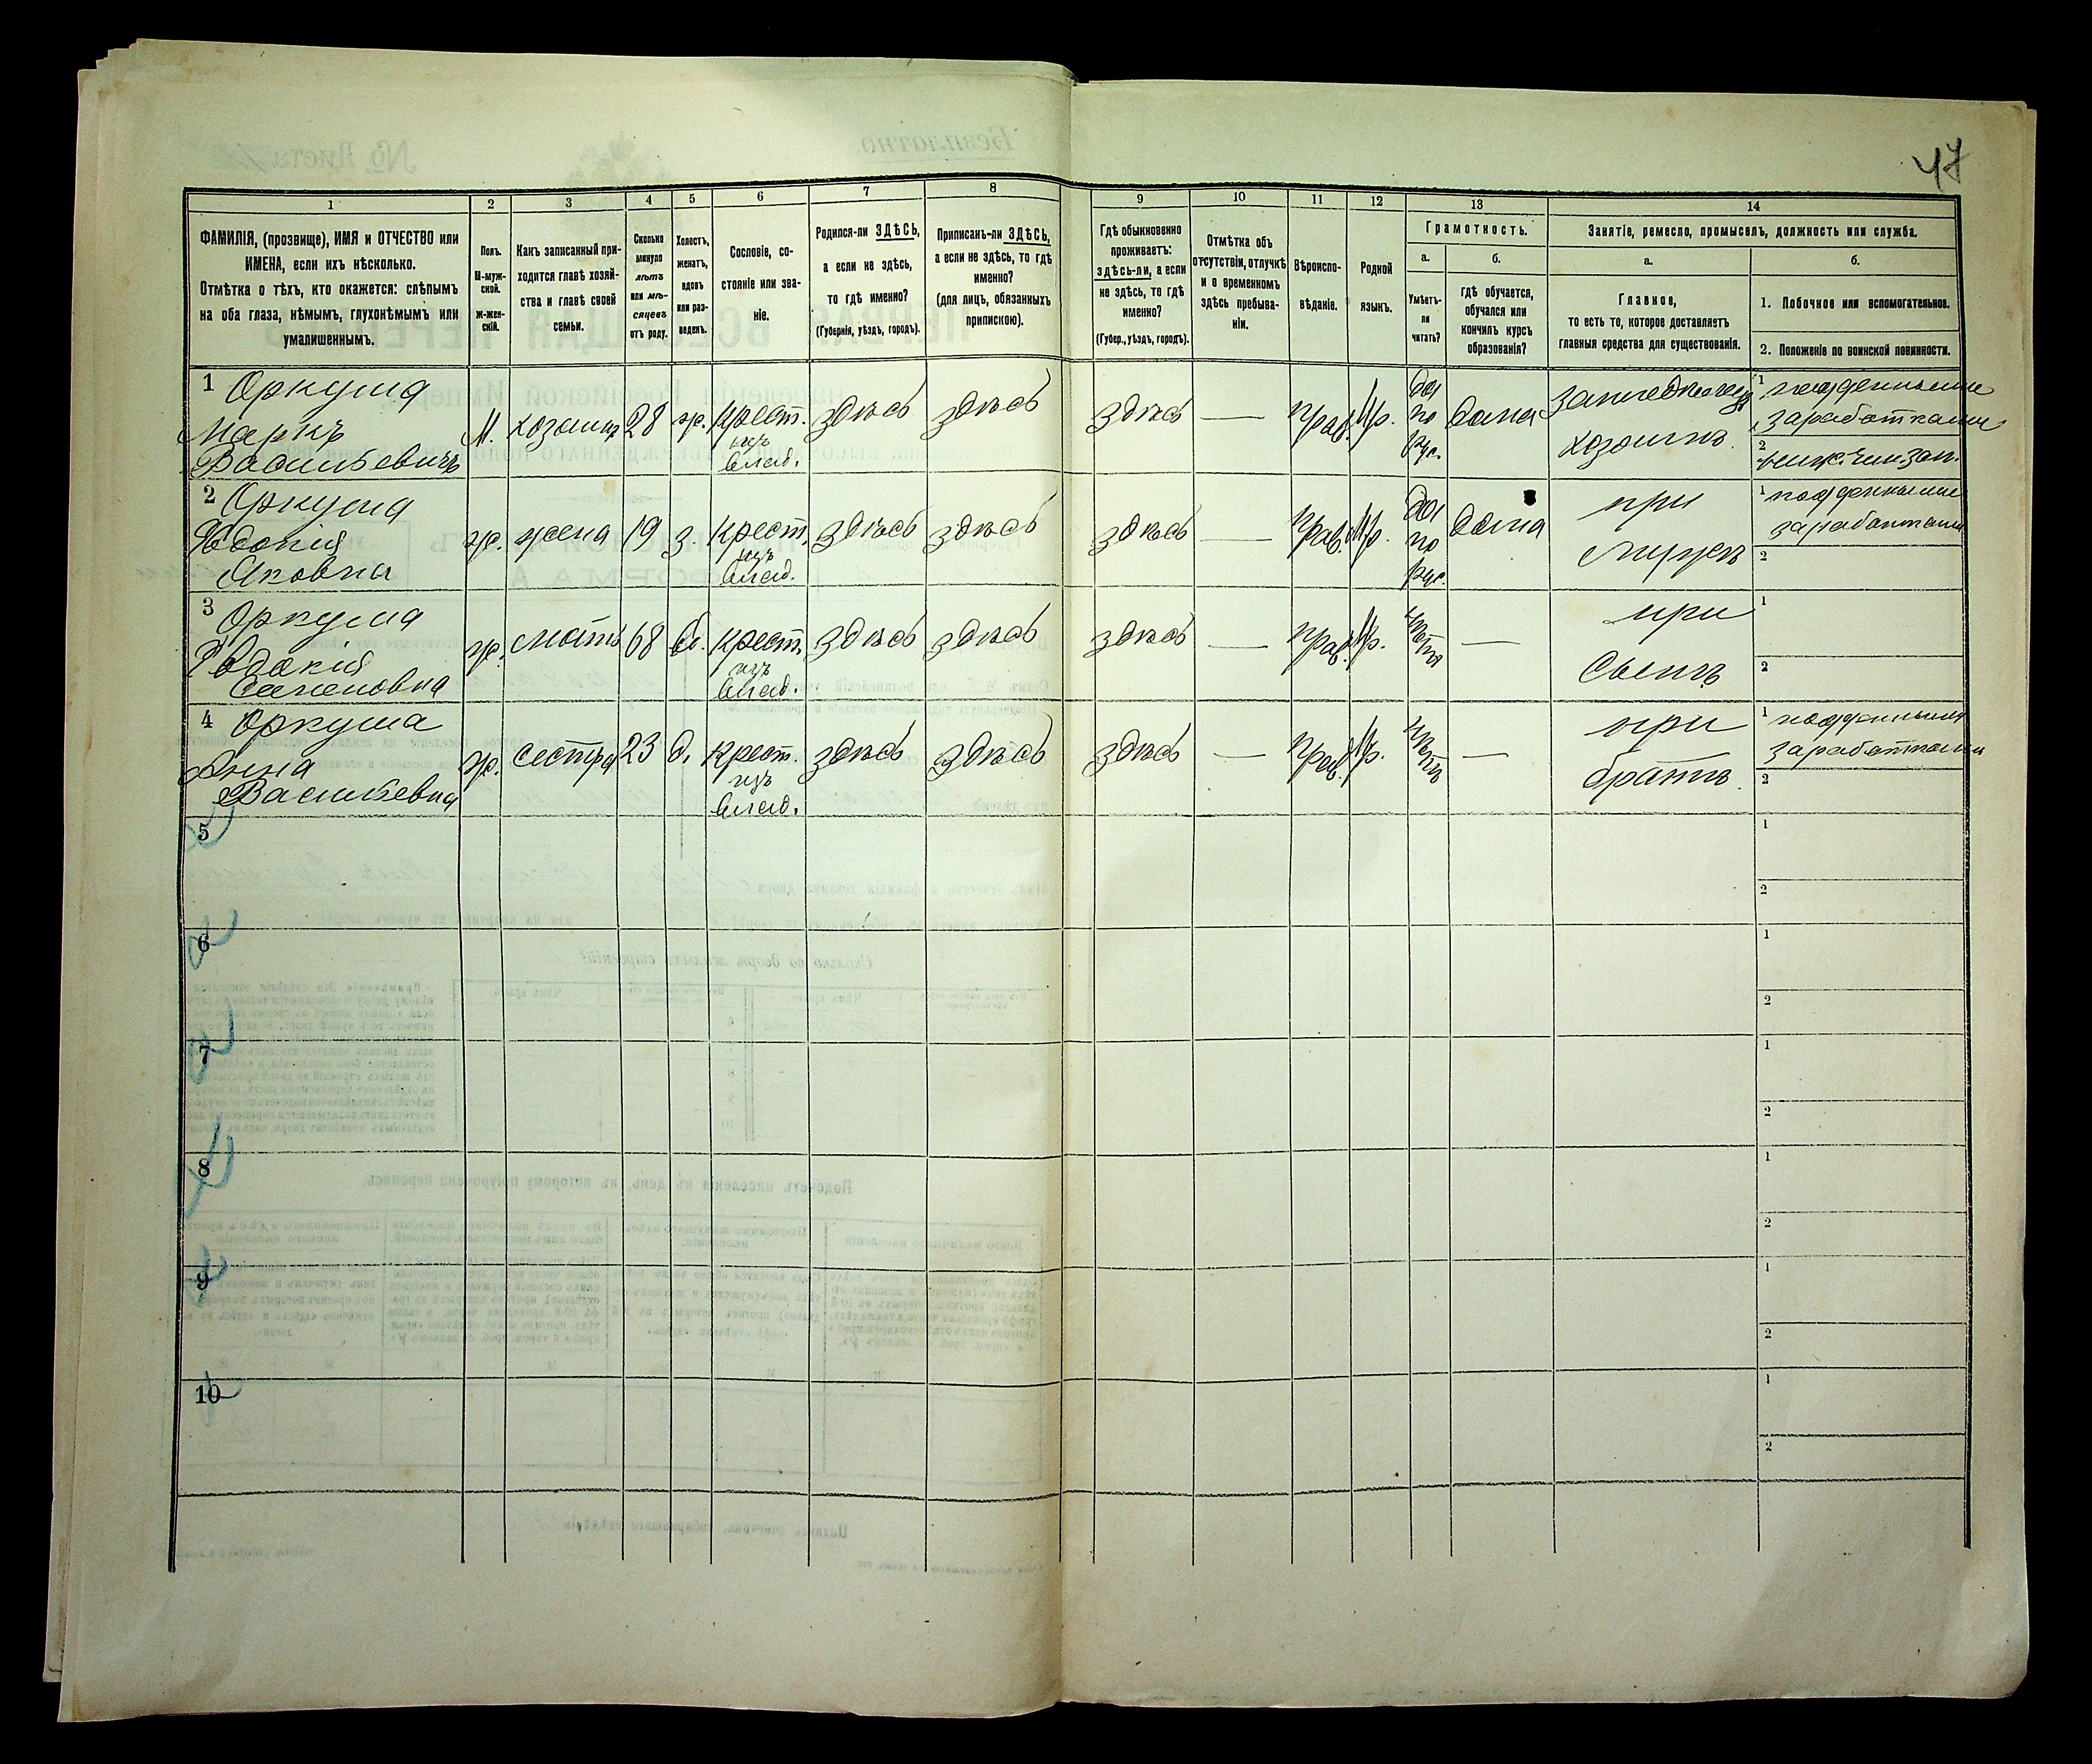 47
1 2 3 4 5 6 7 8 9 10 11 12 13 14
ФАМИЛІЯ, (прозвище), ИМЯ и ОТЧЕСТВО или
ИМЕНА, если ихъ нѣсколько.
Отмѣтка о тѣхъ, кто окажется: слѣпымъ
на оба глаза, нѣмымъ, глухонѣмымъ или
умалишеннымъ.
Полъ.
М-муж-
ской.
Ж-жен-
скій.
Какъ записанный при-
ходится главѣ хозяй-
ства и главѣ своей
семьи.
Сколько
минуло
лѣтъ
или мѣ-
сяцевъ
отъ роду.
Холостъ,
женатъ,
вдовъ
или раз-
веденъ.
Сословіе, со-
стояніе или зва-
ніе.
Родился-ли ЗДѢСЬ,
а если не здѣсь,
то гдѣ именно?
(Губернія, уѣздъ, городъ).
Приписанъ-ли ЗДѢСЬ,
а если не здѣсь, то гдѣ
именно?
(для лицъ, обязанныхъ
припискою).
Гдѣ обыкновенно
проживаетъ:
здѣсь-ли, а если
не здѣсь, то гдѣ
именно?
(Губер., уѣздъ, городъ).
Отмѣтка объ
отсутствіи, отлучкѣ
и о временномъ
здѣсь пребыва-
ніи.
Вѣроиспо-
вѣданіе.
Родной
языкъ.
Грамотность.
а.
Умѣетъ-
ли
читать?
б.
гдѣ обучается,
обучался или
кончилъ курсъ
образованія?
Занятіе, ремесло, промыселъ, должность или служба.
а.
Главное,
то есть то, которое доставляетъ
главныя средства для существованія.
б.
1. Побочное или вспомогательное.
2. Положеніе по воинской повинности.
1 Оркуша
Маркъ
Васильевичъ
М. хозяинъ 28 ж. крест.
изъ
влад.
здѣсь здѣсь здѣсь — прав. Мр.
да
по
рус.
дома
земледѣлецъ
хозяинъ.
1 поденными
заработками
2 ниж. чин. зап.
2 Оркуша
Явдокія
Яковна
ж. жена 19 з. крест.
изъ
влад.
здѣсь здѣсь здѣсь — прав. Мр.
да
по
рус.
дома
при
мужѣ
1 поденными
заработками
2
3 Оркуша
Явдокія
Семеновна
ж. мать 68 вд. крест.
изъ
влад.
здѣсь здѣсь здѣсь — прав. Мр. нѣтъ —
при
сынѣ
1
2
4 Оркуша
Анна
Васильевна
ж. сестра 23 д. крест.
изъ
влад.
здѣсь здѣсь здѣсь — прав. Мр. нѣтъ —
при
братѣ.
1 поденными
заработками
2
5 1
2
6 1
2
7 1
2
8 1
2
9 1
2
10 1
2